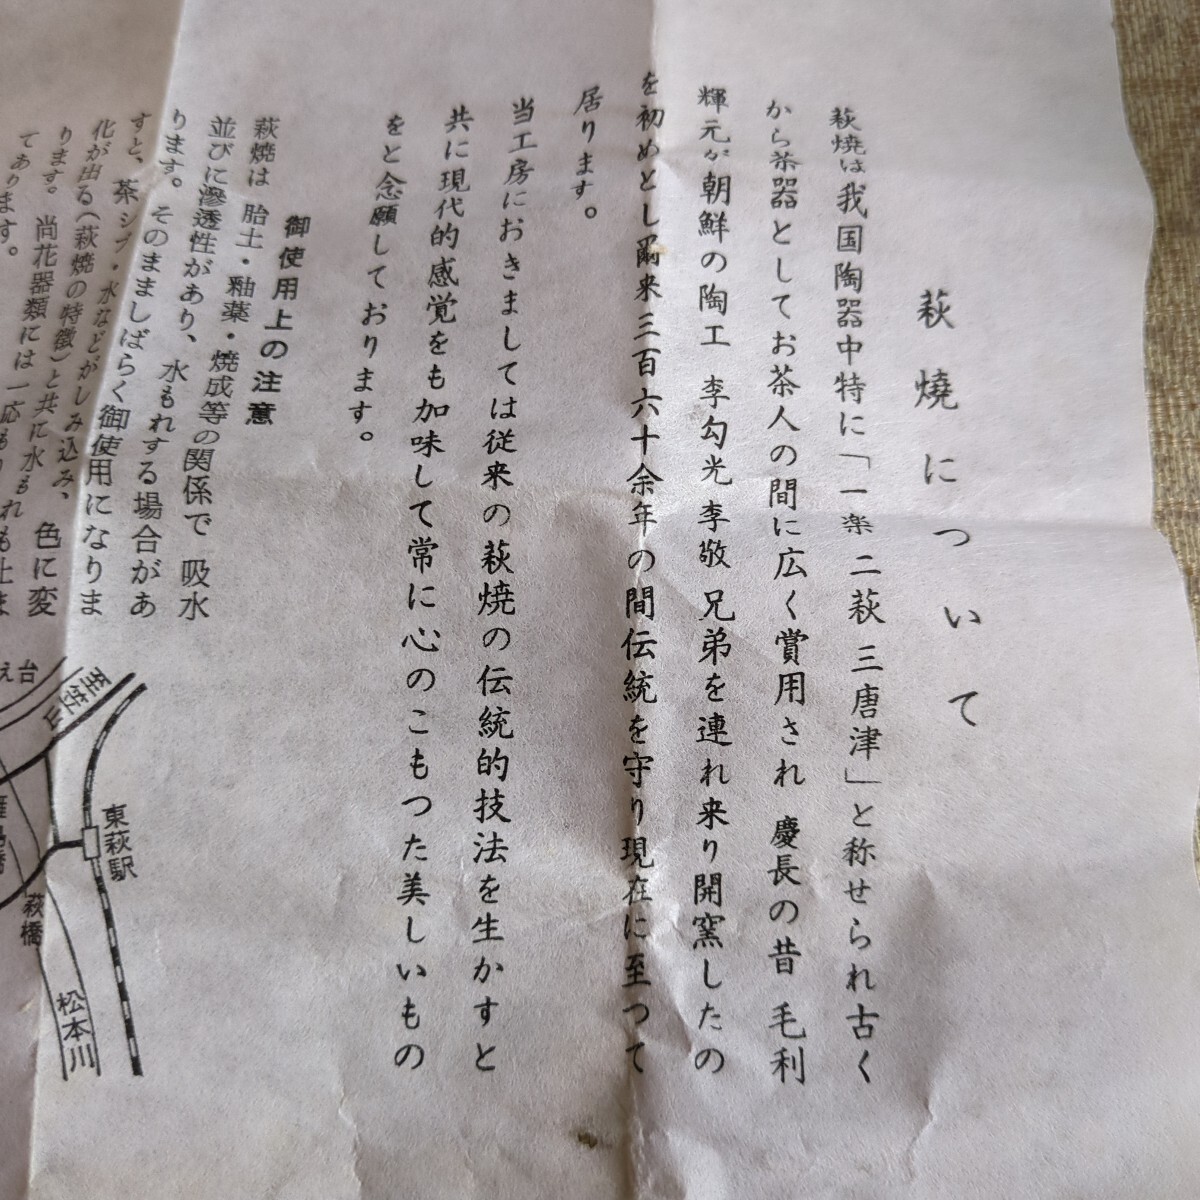 萩燒について
萩焼は我国陶器中特に「一楽 二萩 三唐津」と称せられ古く
から茶器としてお茶人の間に広く賞用され 慶長の昔 毛利
輝元が朝鮮の陶工 李勾光 李敬 兄弟を連れ来り開窯したの
を初めとし爾来三百六十余年の間伝統を守り現在に至つて
居ります。
当工房におきましては従来の萩焼の伝統的技法を生かすと
共に現代的感覚をも加味して常に心のこもつた美しいもの
をと念願しております。
御使用上の注意
萩焼は 胎土・釉薬・焼成等の関係で 吸水
並びに滲透性があり、水もれする場合があ
ります。そのまましばらく御使用になりま
すと、茶シブ・水などがしみ込み、色に変
化が出る(萩焼の特徴)と共に水もれ
ります。尚花器類には一応もりれも止ま
てあります。
至笠山
東萩駅
萩橋
松本川
台
え